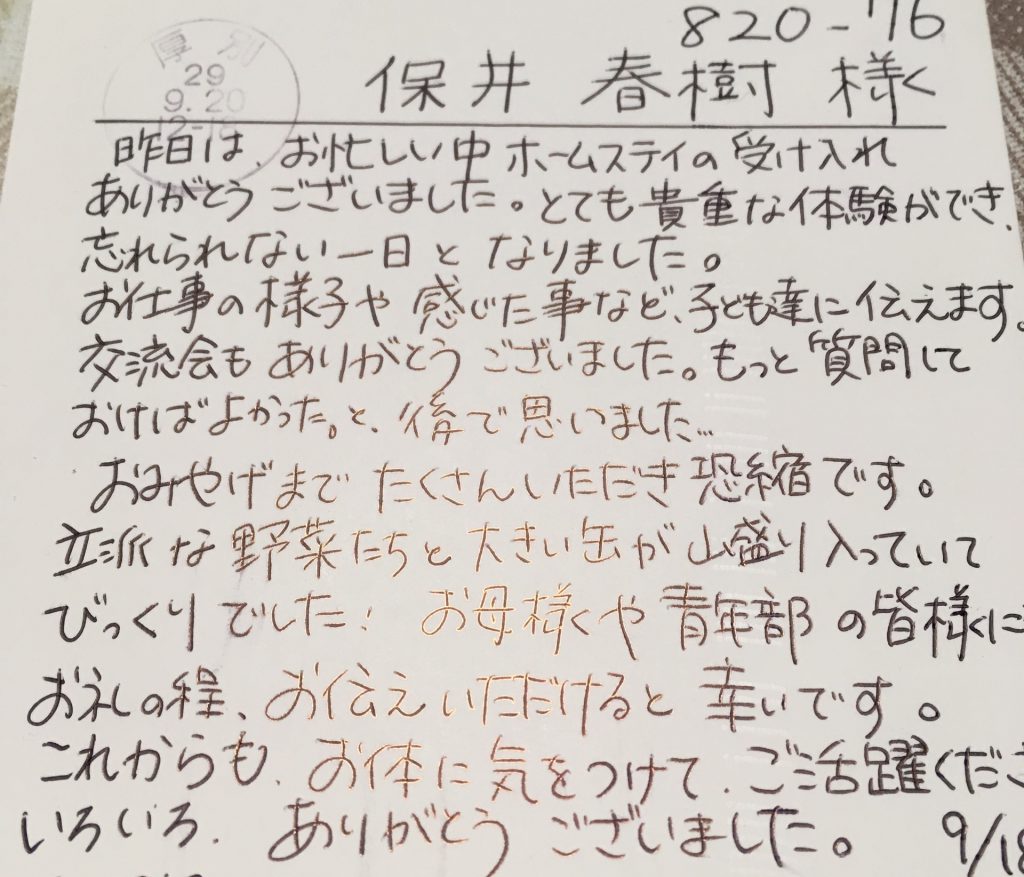 820-76
厚別
29
9.20
12-18
保井 春樹 様
昨日は、お忙しい中 ホームステイの受け入れ
ありがとうございました。とても貴重な体験ができ、
忘れられない一日となりました。
お仕事の様子や感じた事など、子ども達に伝えます。
交流会もありがとうございました。もっと質問して
おけばよかった。と、後で思いました…
おみやげまでたくさんいただき恐縮です。
立派な野菜たちと大きい缶が山盛り入っていて
びっくりでした! お母様や青年部の皆様に
お礼の程、お伝えいただけると幸いです。
これからも、お体に気をつけて、ご活躍くださ
いろいろ、ありがとうございました。 9/18